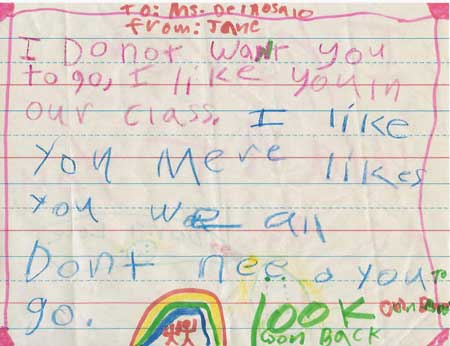 To: Ms. DelRosaio
from: Jane
I Do not want you
to go, I like you in
our class. I like
you Mere likes
you we all
Dont nee d you to
go.
LOOK
oon Back